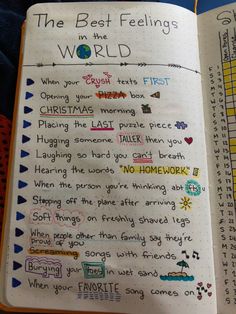 The Best Feelings
in the
WORLD
When your CRUSH texts FIRST
Opening your PIZZA box
CHRISTMAS morning
Placing the LAST puzzle piece
Hugging someone TALLER then you
Laughing so hard you can't breath
Hearing the words "NO HOMEWORK"
When the person you're thinking abt
Stepping off the plane after arriving
Soft things on freshly shaved legs
When people other than family say they're
proud of you
Screaming songs with friends
Burying your toes in wet sand
When your FAVORITE song comes on